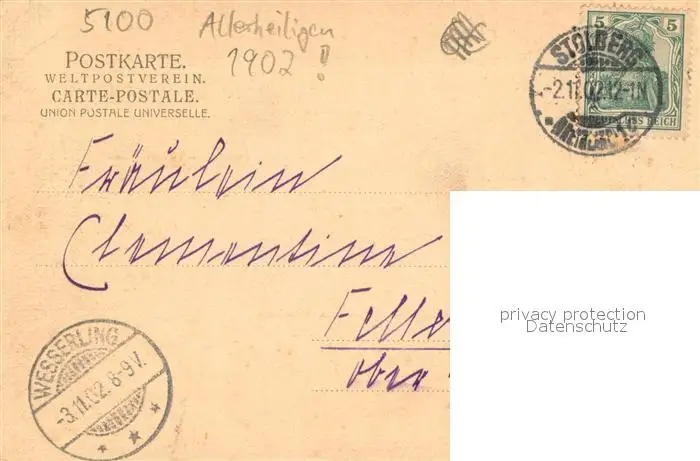 5100
Allerheiligen
1902!
POSTKARTE.
WELTPOSTVEREIN.
CARTE-POSTALE.
UNION POSTALE UNIVERSELLE.
5 5
STOLBERG
-2.11.02.12-1N
DEUTSCHES REICH
Fräulein
Clementine
Felle
ober
WESSERLING
-3.11.02.8-9V.
privacy protection
Datenschutz